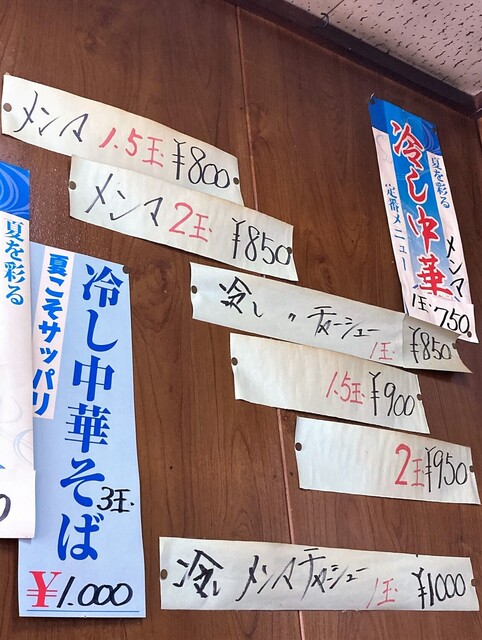 メンマ 1.5玉 ¥800
メンマ 2玉 ¥850
夏を彩る
冷し中華
定番メニュー
メンマ
1玉 750
冷し 〃 チャーシュー 1玉 ¥850
1.5玉 ¥900
2玉 ¥950
冷し メンマチャーシュー 1玉 ¥1000
夏を彩る
夏こそサッパリ
冷し中華そば
3玉
¥1.000